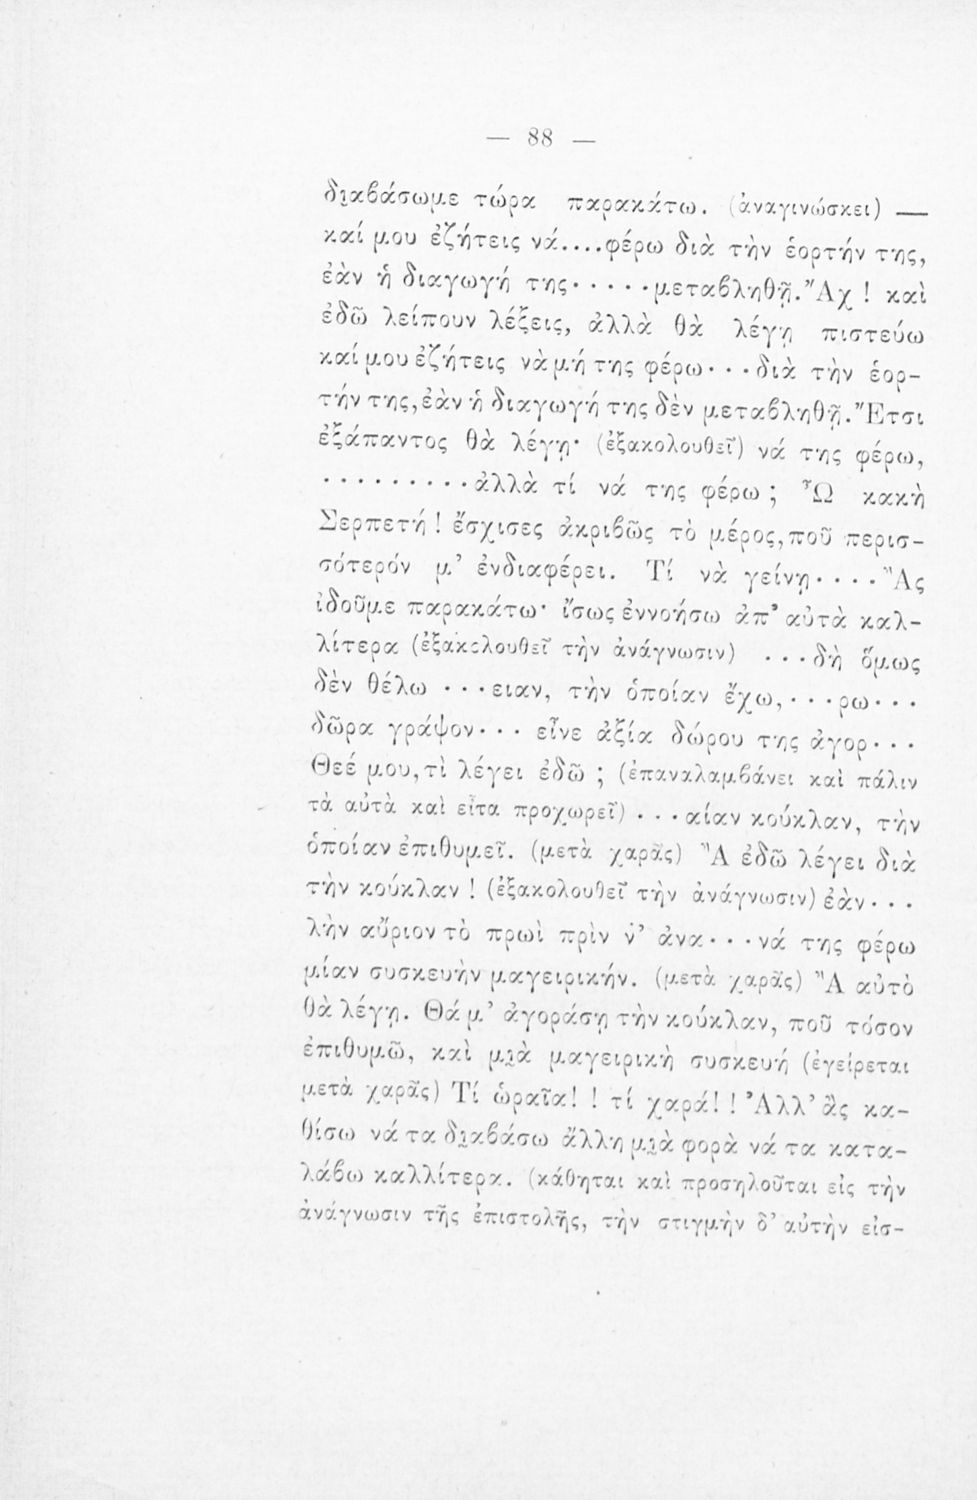 — 88 —
διαβάσωμε τώρα παρακάτω. (ἀναγινώσκει) —
καί μου ἐζήτεις νά....φέρω διὰ τὴν ἑορτήν της,
ἐὰν ἡ διαγωγή της·····μεταβληθῇ. Ἂχ ! καὶ
ἐδῶ λείπουν λέξεις, ἀλλὰ θὰ λέγῃ πιστεύω
καί μου ἐζήτεις νὰ μή της φέρω···διὰ τὴν ἑορ-
τήν της, ἐὰν ἡ διαγωγή της δὲν μεταβληθῇ. Ἔτσι
ἐξάπαντος θὰ λέγῃ· (ἐξακολουθεῖ) νά της φέρω,
··········ἀλλὰ τί νά της φέρω ; Ὦ κακὴ
Σερπετή ! ἔσχισες ἀκριβῶς τὸ μέρος, ποῦ περισ-
σότερόν μ' ἐνδιαφέρει. Τί νὰ γείνῃ····Ἂς
ἰδοῦμε παρακάτω· ἴσως ἐννοήσω ἀπ' αὐτὰ καλ-
λίτερα (ἐξακολουθεῖ τὴν ἀνάγνωσιν) ...δὴ ὅμως
δὲν θέλω ···ειαν, τὴν ὁποίαν ἔχω,···ρω···
δῶρα γράψον··· εἶνε ἀξία δώρου της ἀγορ···
Θεέ μου, τὶ λέγει ἐδῶ ; (ἐπαναλαμβάνει καὶ πάλιν
τὰ αὐτὰ καὶ εἶτα προχωρεῖ) ···αίαν κούκλαν, τὴν
ὁποίαν ἐπιθυμεῖ. (μετὰ χαρᾶς) Ἂ ἐδῶ λέγει διὰ
τὴν κούκλαν ! (ἐξακολουθεῖ τὴν ἀνάγνωσιν) ἐὰν···
λὴν αὔριον τὸ πρωὶ πρὶν ν' ἀνα···νά της φέρω
μίαν συσκευὴν μαγειρικήν. (μετὰ χαρᾶς) Ἂ αὐτὸ
θὰ λέγῃ. Θά μ' ἀγοράσῃ τὴν κούκλαν, ποῦ τόσον
ἐπιθυμῶ, καὶ μιὰ μαγειρικὴ συσκευή (ἐγείρεται
μετὰ χαρᾶς) Τί ὡραῖα! ! τί χαρά! ! Ἀλλ' ἂς κα-
θίσω νά τα διαβάσω ἄλλη μιὰ φορὰ νά τα κατα-
λάβω καλλίτερα. (κάθηται καὶ προσηλοῦται εἰς τὴν
ἀνάγνωσιν τῆς ἐπιστολῆς, τὴν στιγμὴν δ' αὐτὴν εἰσ-